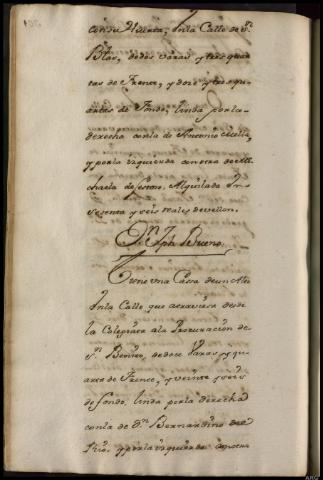 con su Huerta, Inla Calle de Sn.
Blas, de dos varas y tres quar
tas de Frente, y doze y tres qu
artas de Fondo, linda por la
derecha con la de Antonio
y por la izquierda con otra de Mi
chaela de Alquilada In
sesenta y seis reales de vellon.
Dn. Jph Bueno.
Tiene una Cassa de un Alto
Inla Calle que atraviesa desde
la Colegiata ala Procuracion de
Sn. Benito, de doce Varas y qu
arta de Frente, y veinte y seis
de fondo, linda por la derecha
con la de Dn. Bernardino del
Rio, y por la izquierda con otra